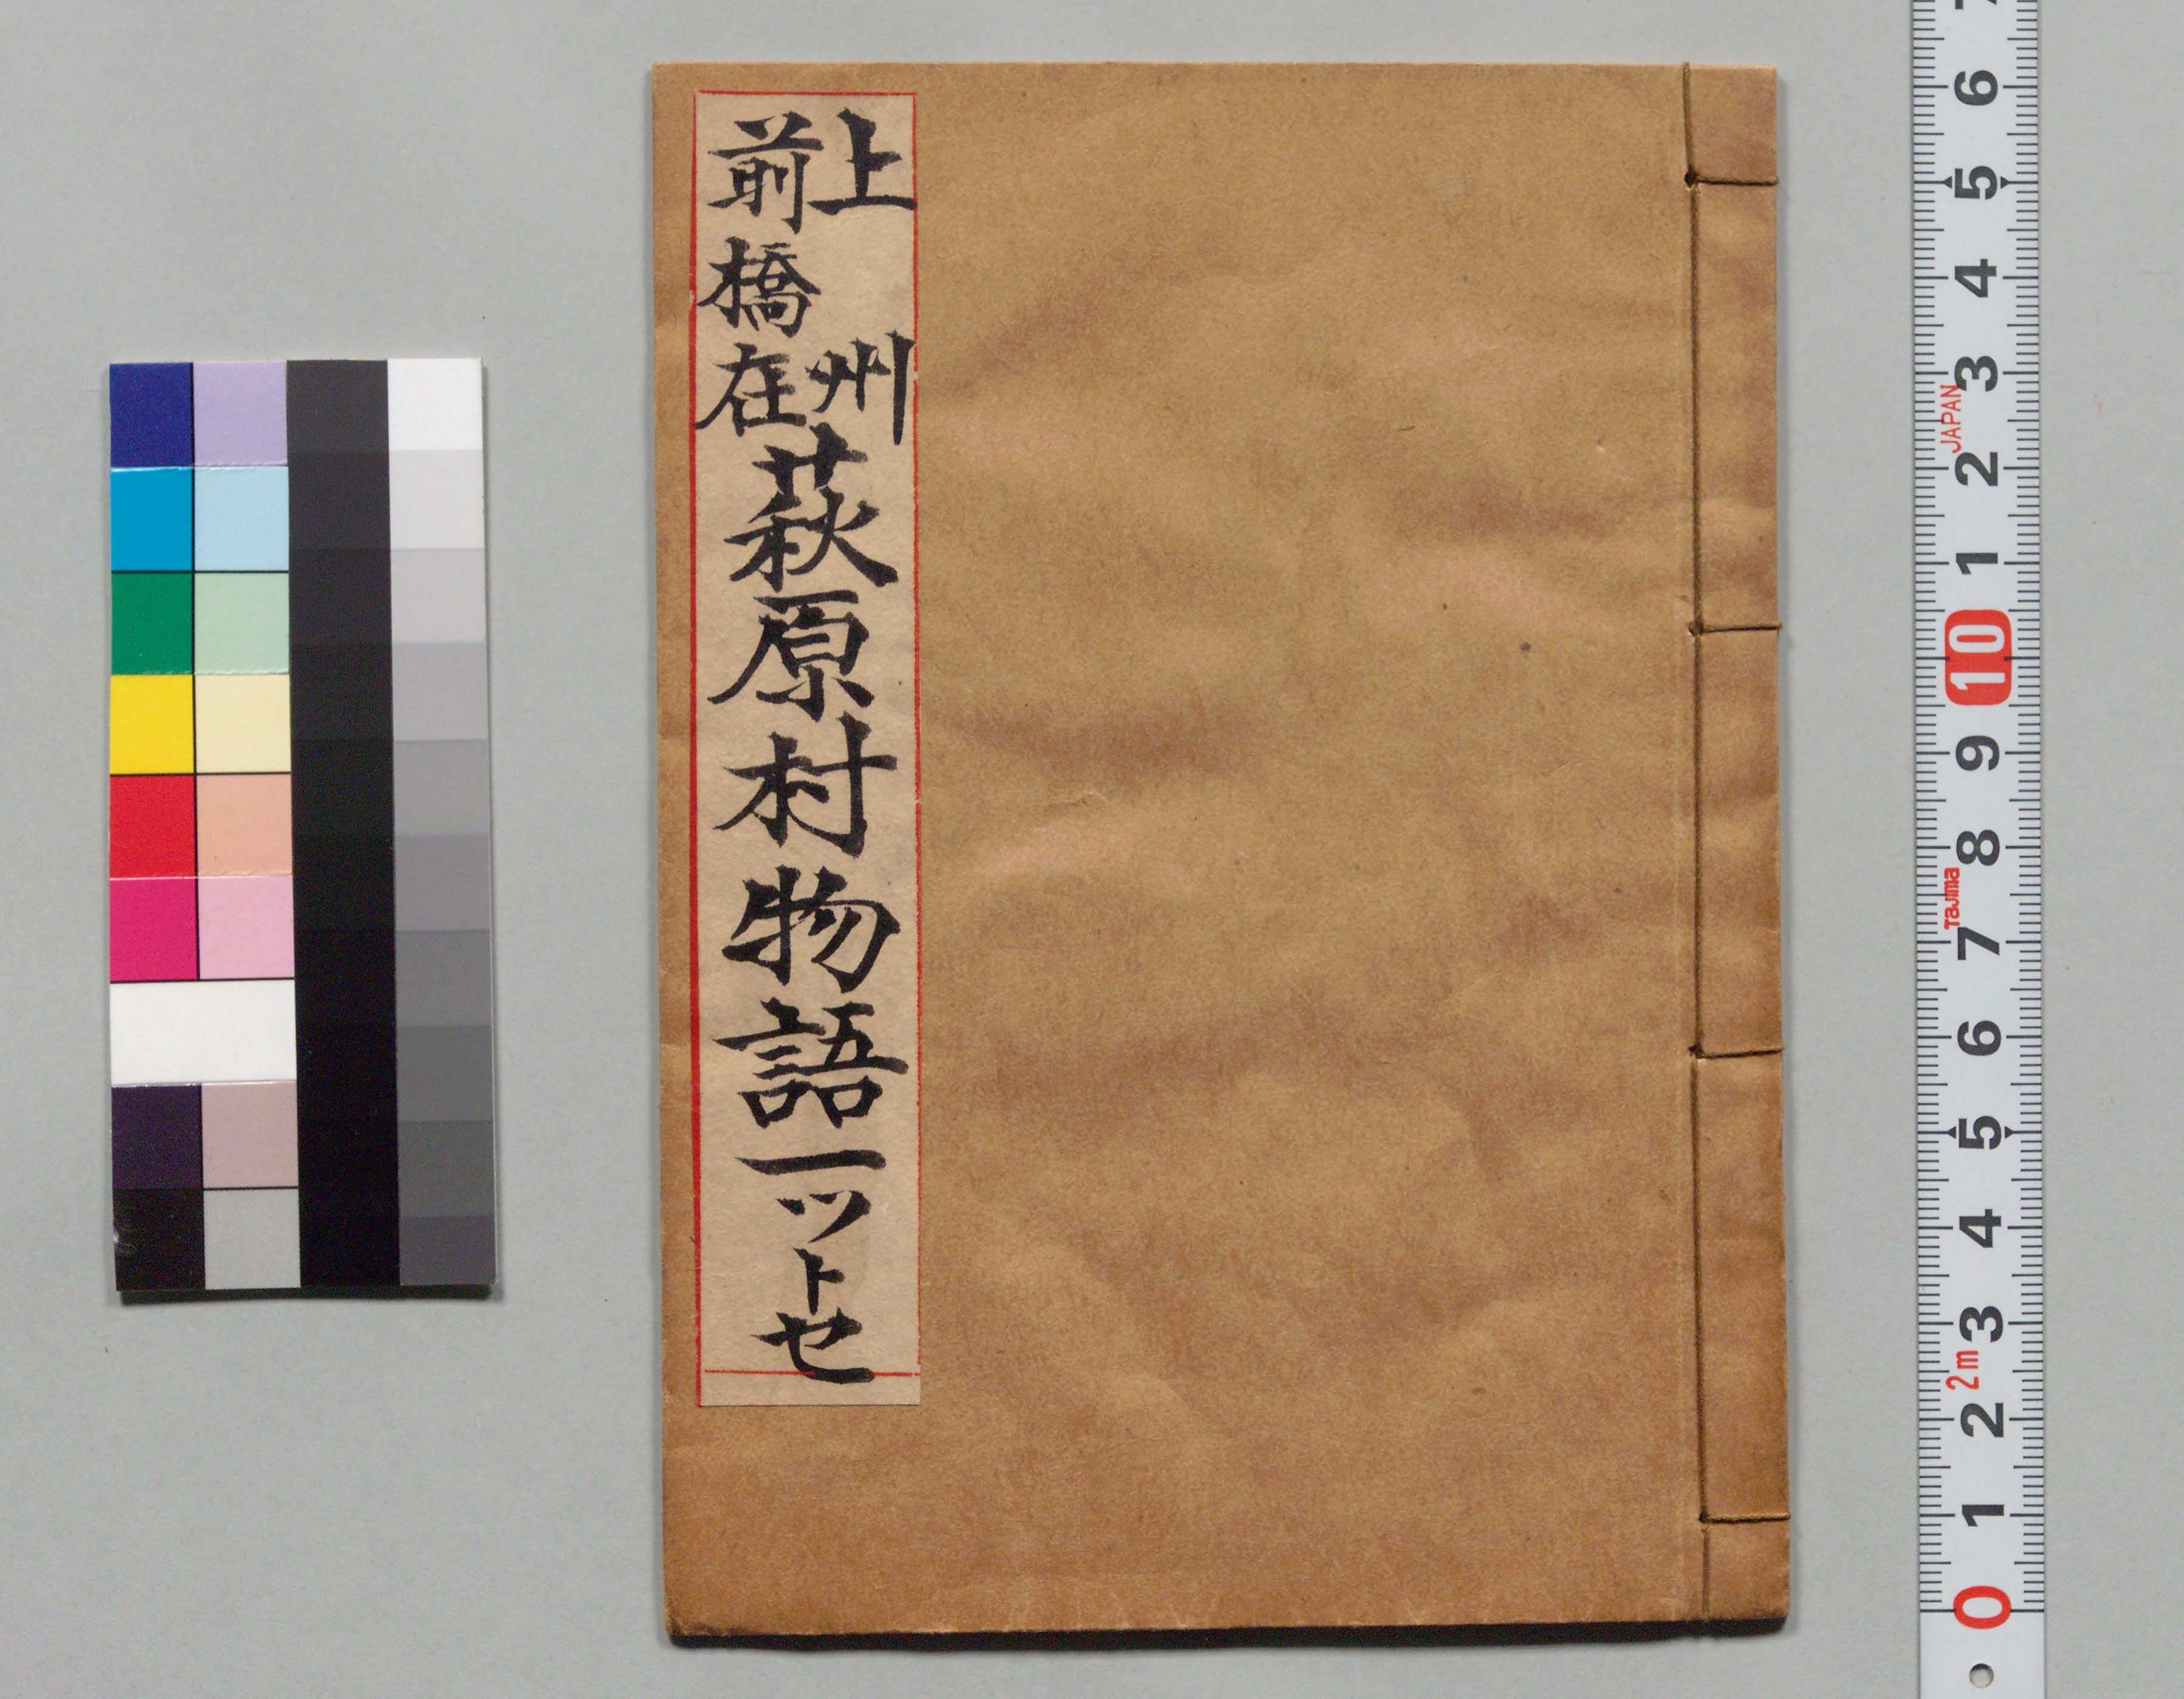 上州
前橋在
萩原村物語一ツトセ
7
6
5
4
3
JAPAN
2
1
10
9
8
Tajima
7
6
5
4
3
2m
2
1
0